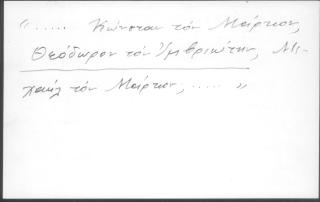 “ ..... Κώνσταν τὸν Μαύρτιον,
Θεόδωρον τὸν Ἰμβριώτην, Μι-
χαὴλ τὸν Μαύρτιον, ..... ”